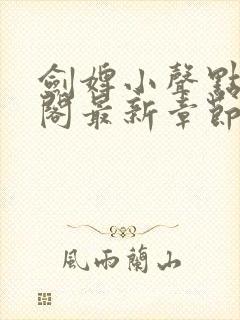 劍嬅小聲點
閣最新章節
風雨蘭山